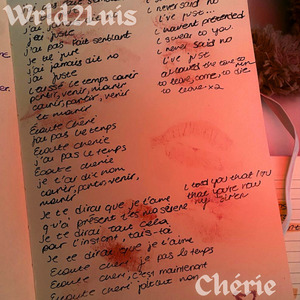 Wrld2Luis
j'ai juste
j'ai pas fait semblant
je te jure
j'ai jamais dit no
j'ai juste
laissé le temps courir
partir, venir, mourir
courir, partir, venir
et mourir
Écoute chéri
j'ai pas le temps
Écoute cherie
j'ai pas le temps
Écoute cherie
je t'ai dis non
courir, partir, venir,
mourir
Je te dirai que je t'aime
Je te dirai tout cela
pour l'instant, tais-toi
Je te dirai que je t'aime
Écoute cheri, je pas le temps
Écoute cheri, c'est maintenant
Écoute cheri
i never said no
i've just...
i haven't pretended
i swear to you
i never said no
i've just...
to leave, come, to die
to leave x2
i told you that i
that you're
my siren
Chérie